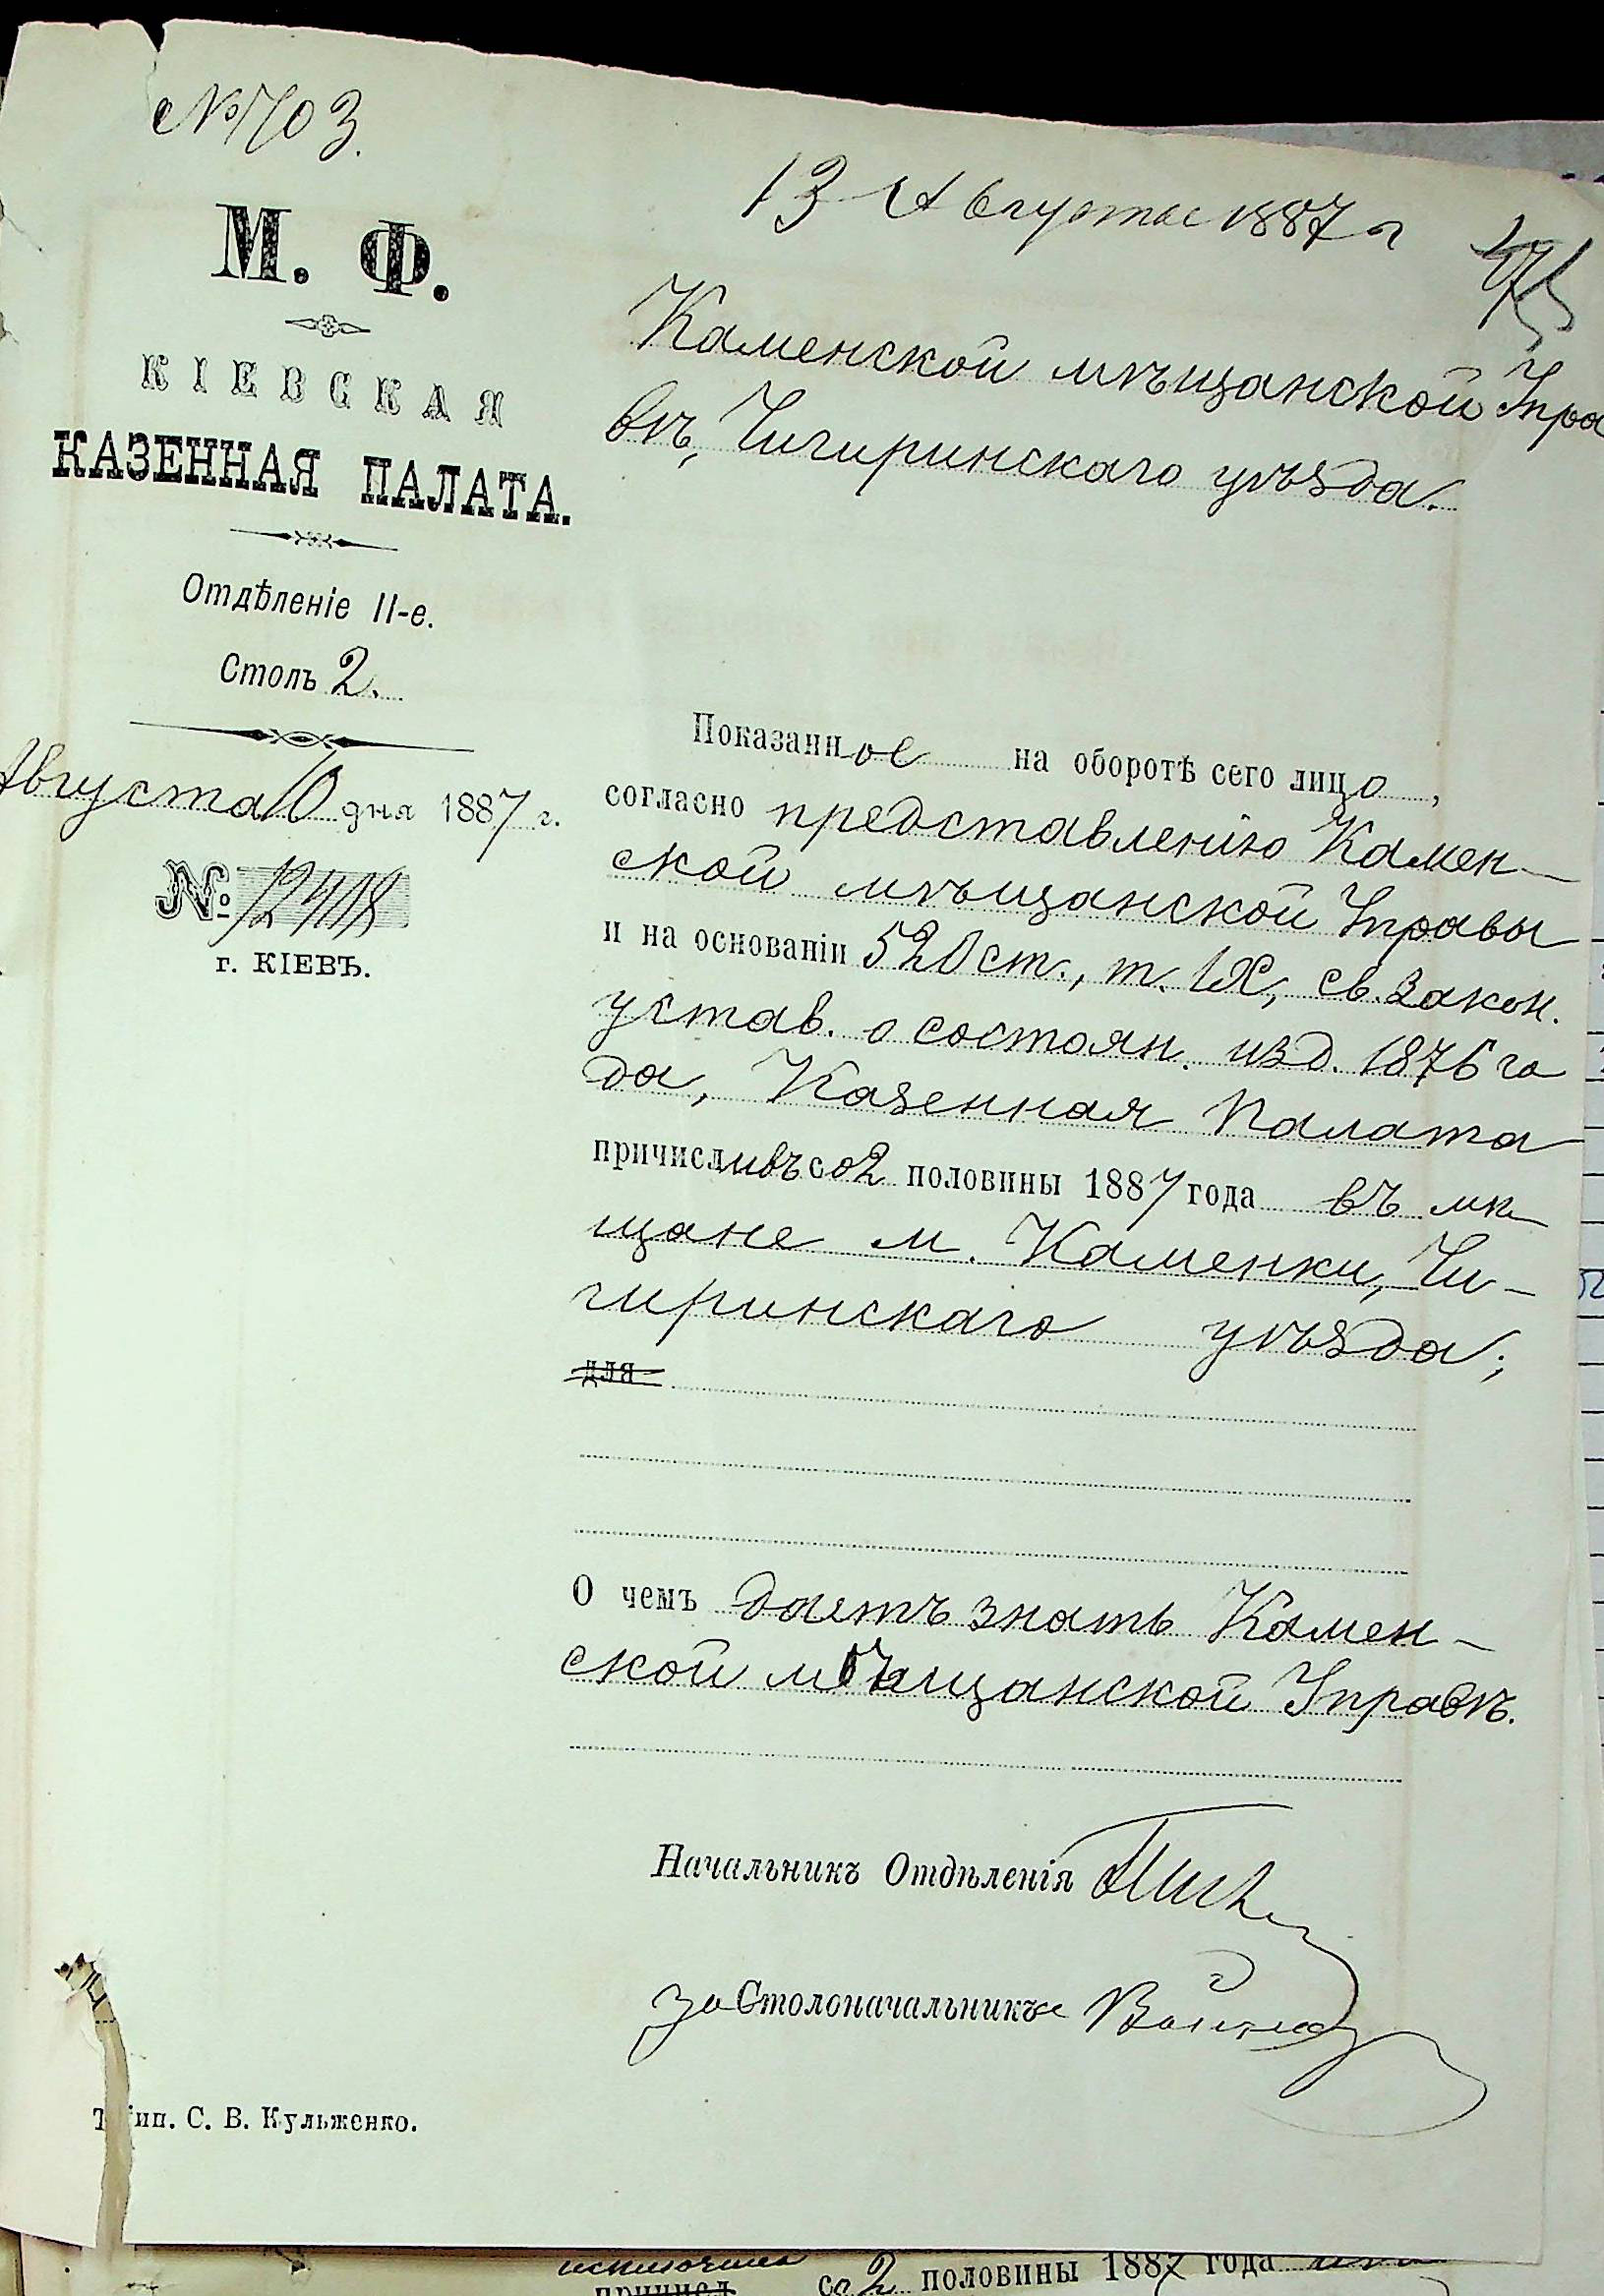 № 703.
13 Августа 1887 г
М. Ф.
КІЕВСКАЯ
КАЗЕННАЯ ПАЛАТА.
Отдѣленіе II-е.
Столъ 2.
Августа 10 дня 1887 г.
№ 12418
г. КІЕВЪ.
Каменской мѣщанской Упра
вѣ, Чигиринскаго уѣзда.
Показанное на оборотѣ сего лицо,
согласно представленію Камен-
ской мѣщанской Управы
и на основаніи 520 ст., т. IX, св. закон.
устав. о состоян. изд. 1876 го
да, Казенная Палата
причисливъ со 2 половины 1887 года въ мѣ
щане м. Каменки, Чи-
гиринскаго уѣзда;
для
О чемъ даетъ знать Камен-
ской мѣщанской Управѣ.
Начальникъ Отдѣленія
за Столоначальника
Тип. С. В. Кульженко.
исключила
причисл со 2 половины 1887 года